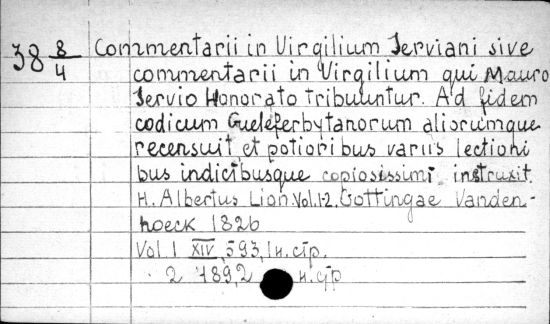 38 8/4 Commentarii in Virgilium Serviani sive
commentarii in Virgilium qui Mauro
Servio Honorato tribuuntur. Ad fidem
codicum Guelferbytanorum aliorumque
recensuit et potioribus variis lectioni
bus indicibusque copiosissimi instruxit.
H. Albertus Lion. Vol. 1-2. Gottingae Vanden-
hoeck 1826
Vol. 1 XIV, 593, 1 н. стр.
2 489, 2 н. стр